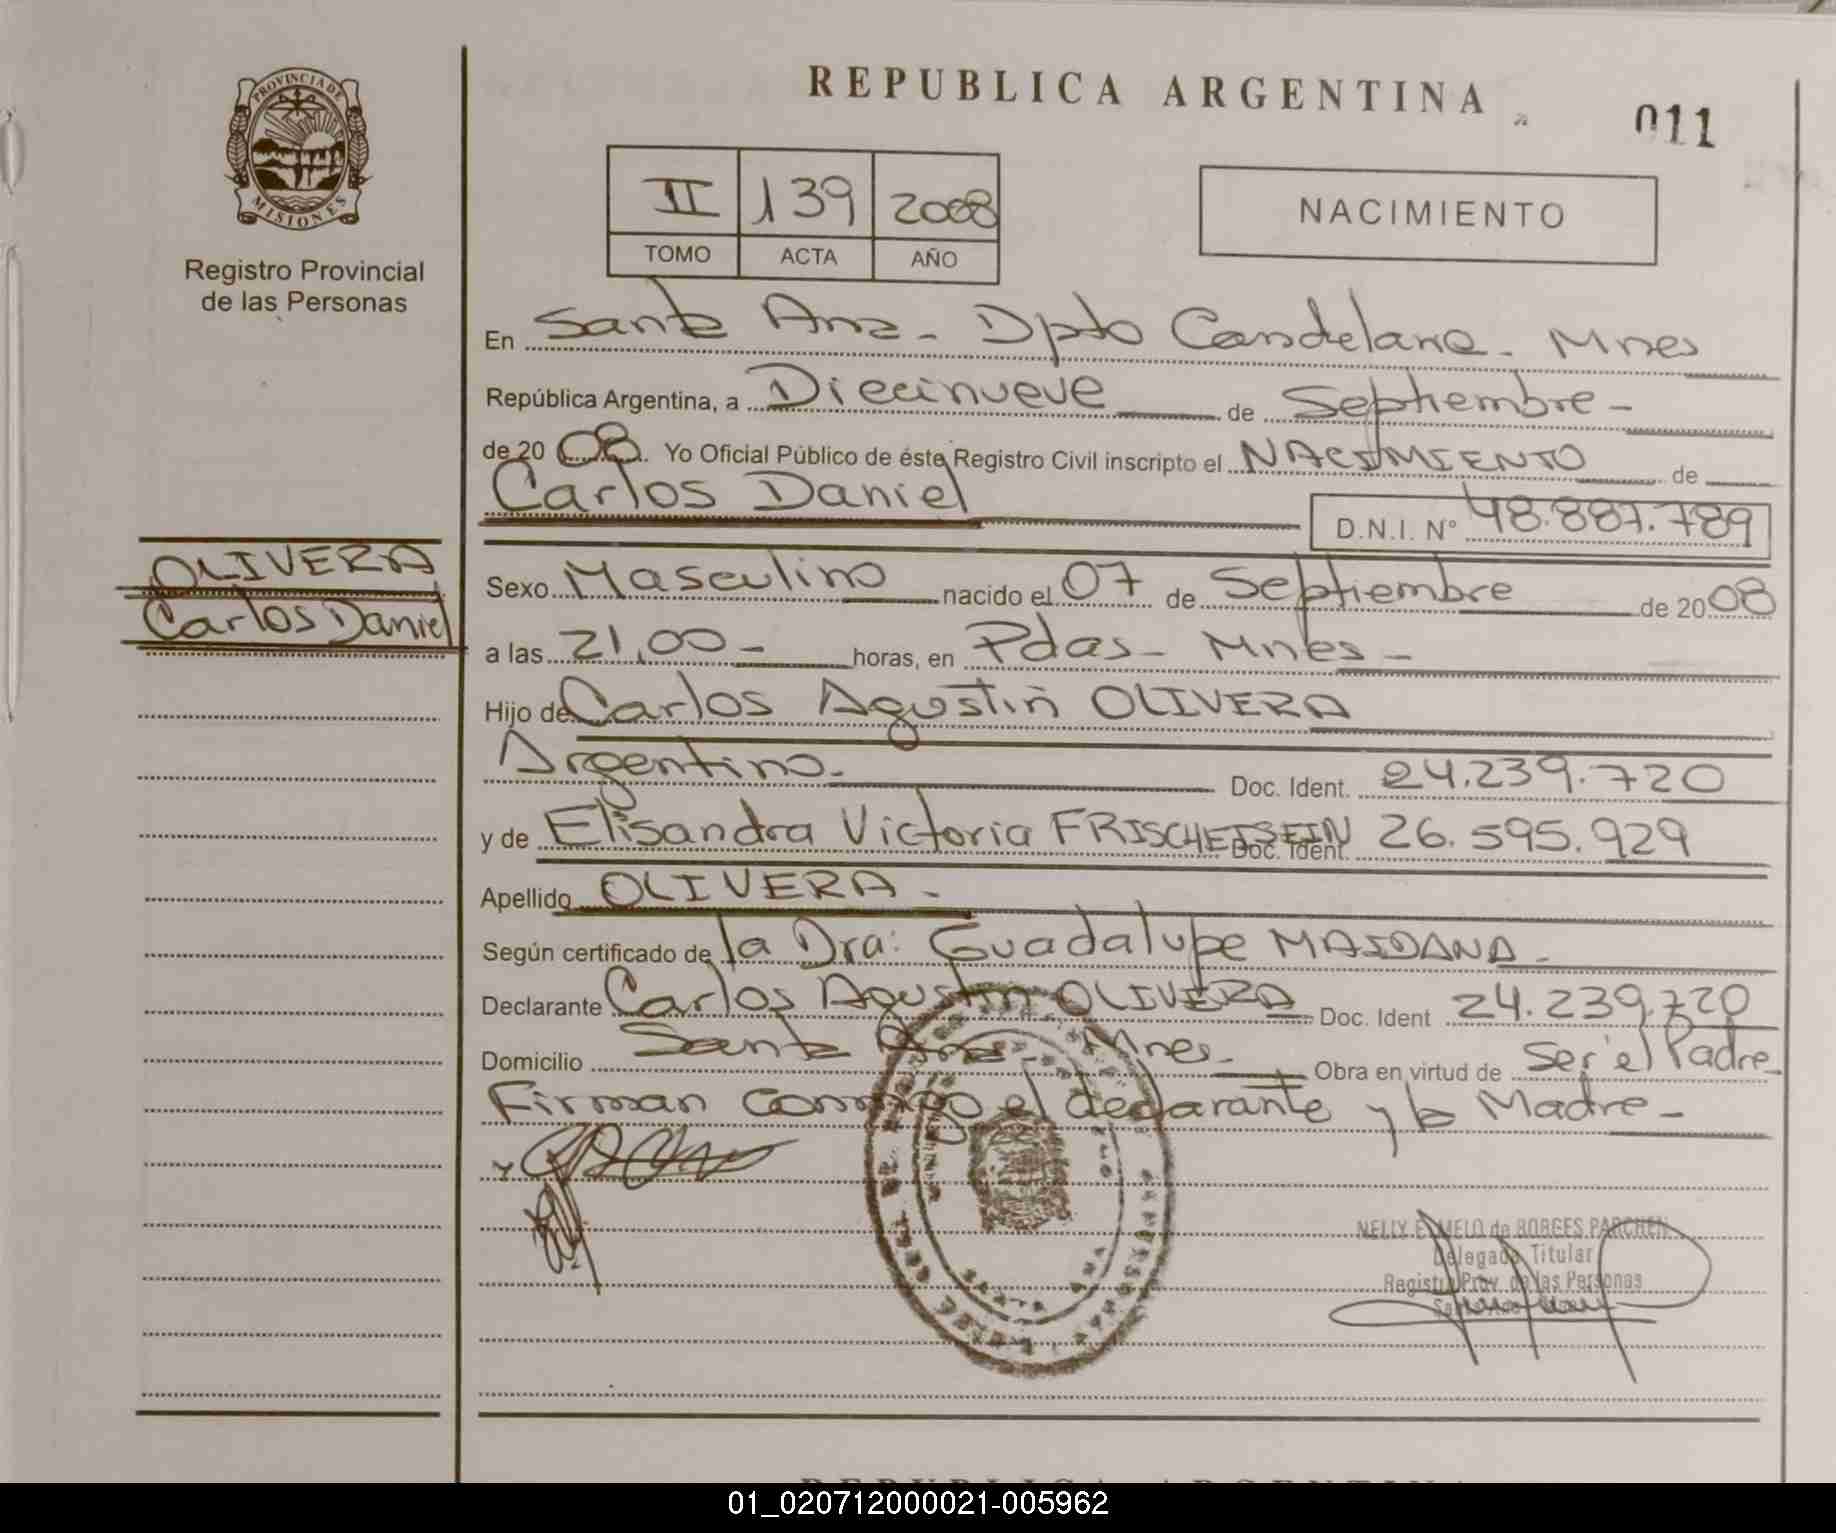 PROVINCIA DE
MISIONES
Registro Provincial
de las Personas
OLIVERA
Carlos Daniel
REPUBLICA ARGENTINA
011
II 139 2008
TOMO ACTA AÑO
NACIMIENTO
En Santa Ana - Dpto Candelaria - Mnes
República Argentina, a Diecinueve de Septiembre -
de 20 08. Yo Oficial Público de éste Registro Civil inscripto el NACIMIENTO de
Carlos Daniel D.N.I. N° 48.887.789
Sexo Masculino nacido el 07 de Septiembre de 2008
a las 21,00 - horas, en Pdas - Mnes -
Hijo de Carlos Agustin OLIVERA
Argentino - Doc. Ident. 24.239.720
y de Elisandra Victoria FRISCHEISEIN Doc. Ident. 26.595.929
Apellido OLIVERA -
Según certificado de la Dra: Guadalupe MAIDANA -
Declarante Carlos Agustin OLIVERA Doc. Ident 24.239.720
Domicilio Santa Ana - Mnes - Obra en virtud de Ser el Padre -
Firman conmigo el declarante y la Madre -
NELLY E. MELO de BORGES PARCHEN
Delegada Titular
Registro Prov. de las Personas
REPUBLICA ARGENTINA
01_020712000021-005962